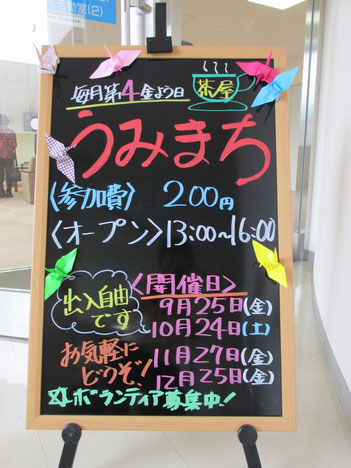 室(2)
毎月第4金よう日
茶屋
うみまち
〈参加費〉 200円
〈オープン〉13:00~16:00
出入自由
です
〈開催日〉
9月25日(金)
10月24日(土)
11月27日(金)
12月25日(金)
お気軽に
どうぞ!
ボランティア募集中!